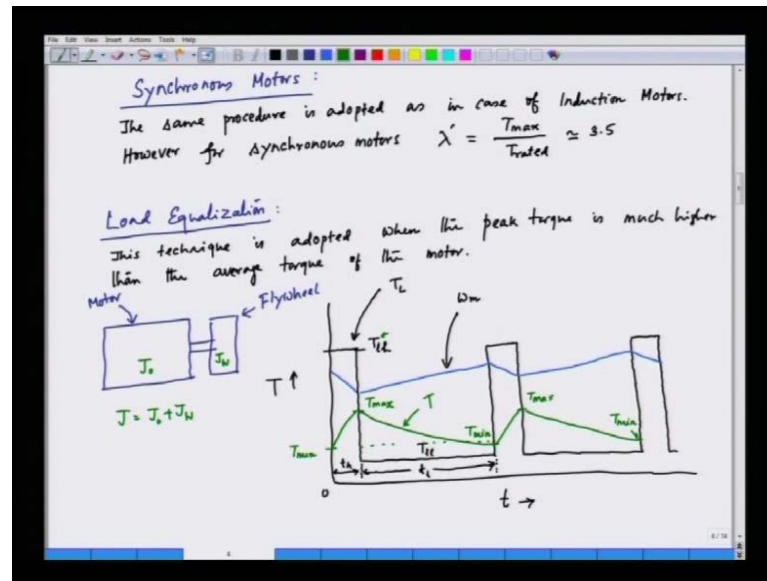 File Edit View Insert Actions Tools Help
Synchronous Motors :
The same procedure is adopted as in case of Induction Motors.
However for synchronous motors λ' = Tmax / Trated ≃ 3.5
Load Equalization :
This technique is adopted when the peak torque is much higher
than the average torque of the motor.
Motor
Flywheel
J₀
J_W
J = J₀ + J_W
T_L
ωm
T ↑
Tmax
T
Tmax
Tmin
Tmin
Tmin
T_ll
t_h
t_l
0
t →